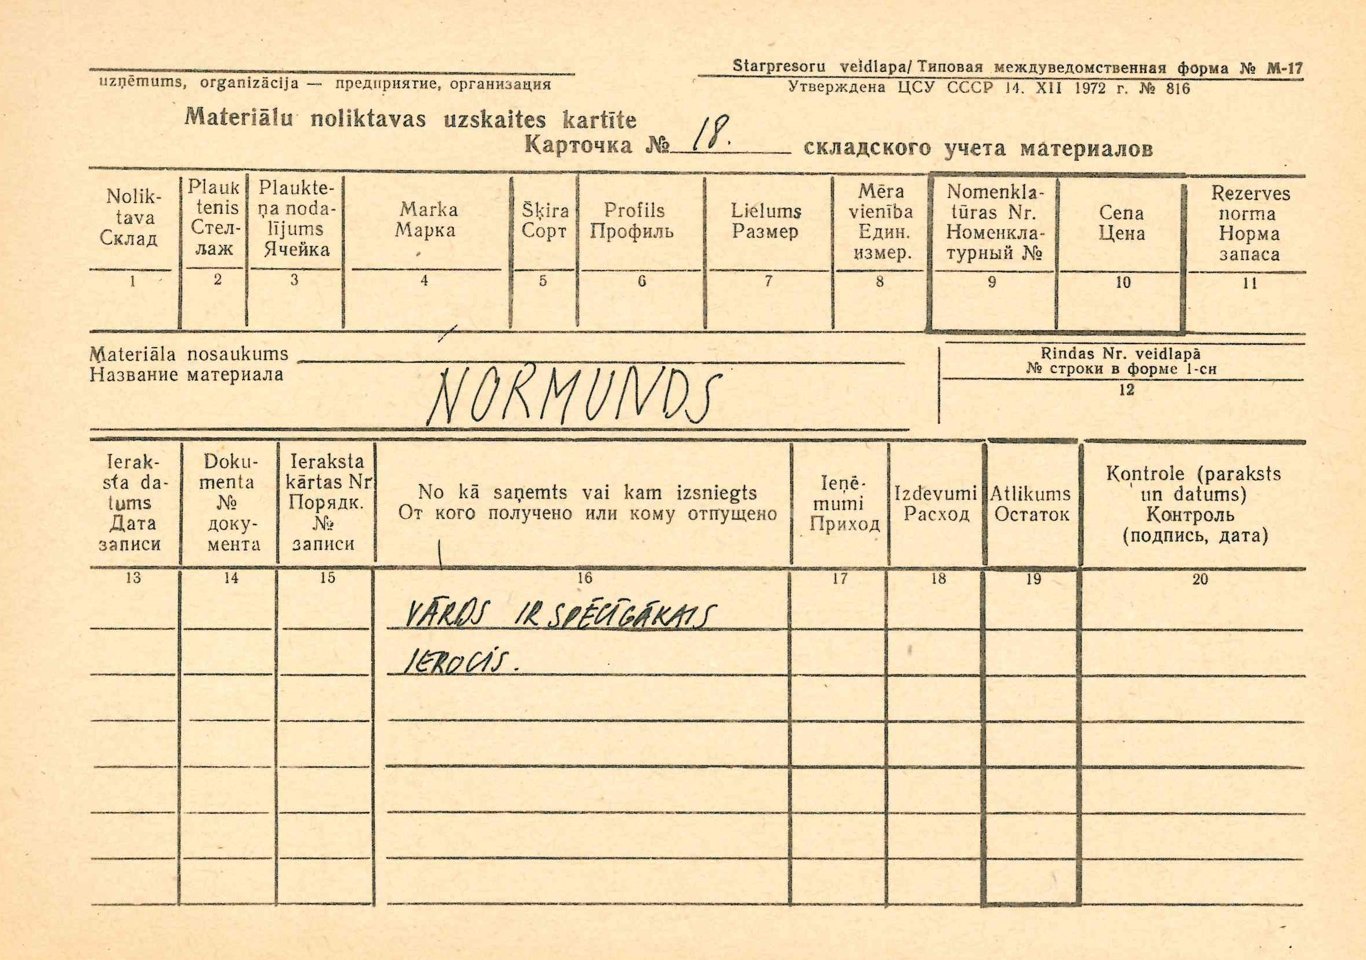 Starpresoru veidlapa/ Типовая междуведомственная форма № М-17
uzņēmums, organizācija — предприятие, организация
Утверждена ЦСУ СССР 14. XII 1972 г. № 816
Materiālu noliktavas uzskaites kartīte
Карточка № 18. складского учета материалов
Nolik-
tava
Склад
Plauk
tenis
Стел-
лаж
Plaukte-
ņa noda-
lījums
Ячейка
Marka
Марка
Šķira
Сорт
Profils
Профиль
Lielums
Размер
Mēra
vienība
Един.
измер.
Nomenkla-
tūras Nr.
Номенкла-
турный №
Cena
Цена
Rezerves
norma
Норма
запаса
1 2 3 4 5 6 7 8 9 10 11
Materiāla nosaukums
Название материала
NORMUNDS
Rindas Nr. veidlapā
№ строки в форме 1-сн
12
Ierak-
sta da-
tums
Дата
записи
Doku-
menta
№
доку-
мента
Ieraksta
kārtas Nr
Порядк.
№
записи
No kā saņemts vai kam izsniegts
От кого получено или кому отпущено
Ieņē-
mumi
Приход
Izdevumi
Расход
Atlikums
Остаток
Kontrole (paraksts
un datums)
Контроль
(подпись, дата)
13 14 15 16 17 18 19 20
VĀRDS IR SPĒCĪGĀKAIS
IEROCIS.